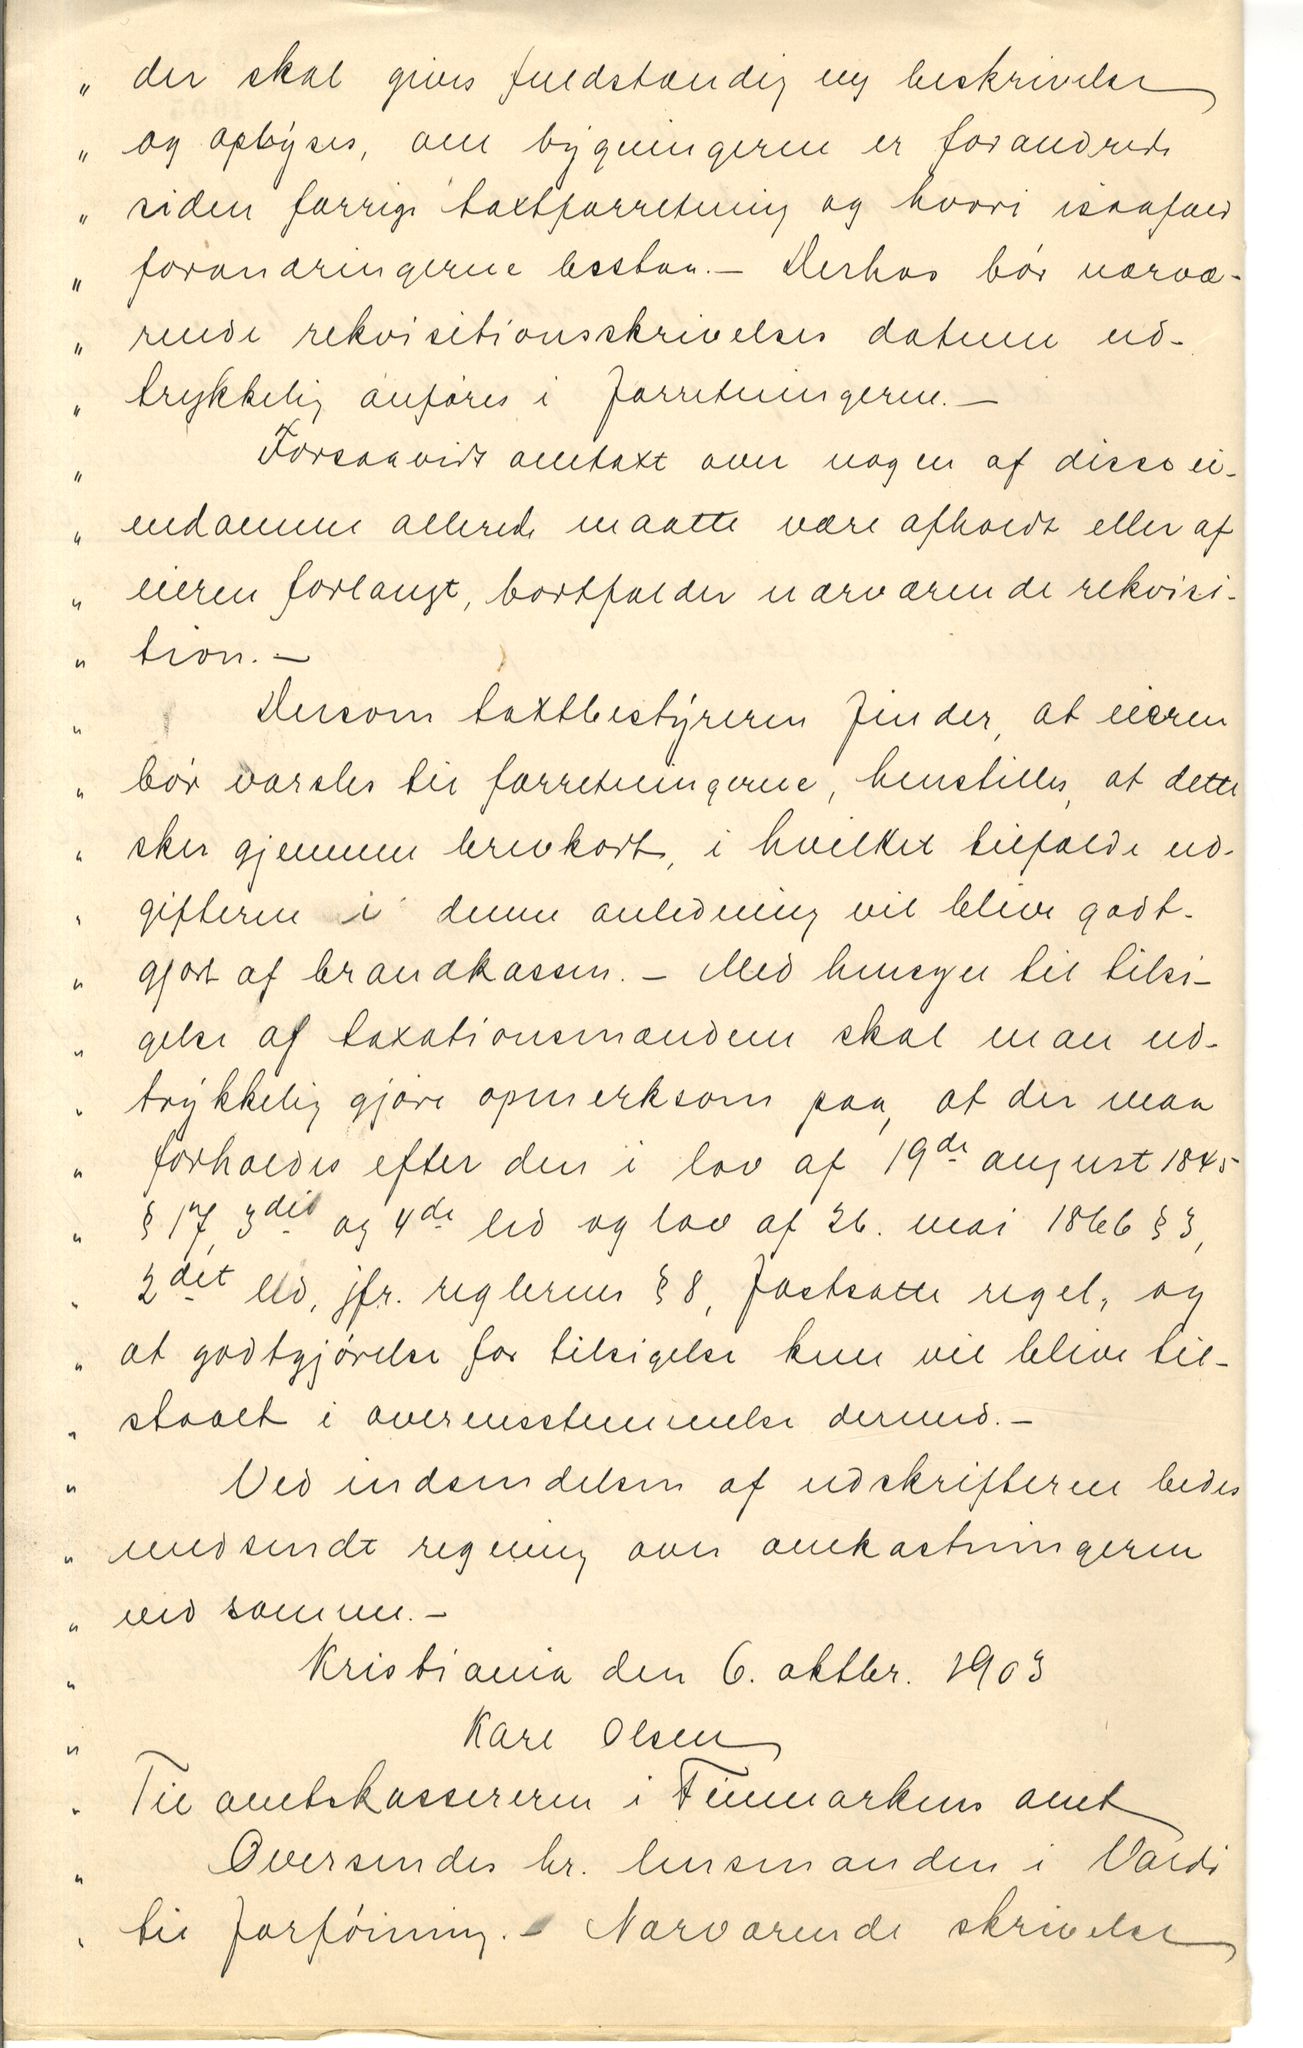 „ der skal gives fuldstændig ny beskrivelse
„ og oplyses, om bygningerne er forandrede
„ siden forrige taxtforretning og hvori isaafald
„ forandringerne bestaa. — Derhos bør nærvæ-
„ rende rekvisitionsskrivelses datum ud-
„ trykkelig anføres i forretningerne. —
„ Forsaavidt omtaxt over nogen af disse ei-
„ endomme allerede maatte være afholdt eller af
„ eieren forlangt, bortfalder nærværende rekvisi-
„ tion. —
„ Dersom taxtbestyreren finder, at eieren
„ bør varsles til forretningerne, henstilles, at dette
„ sker gjennem brevkort, i hvilket tilfælde ud-
„ gifterne i denne anledning vil blive godt-
„ gjort af brandkassen. — Med hensyn til tilsi-
„ gelse af taxationsmændene skal man ud-
„ trykkelig gjøre opmerksom paa, at der maa
„ forholdes efter den i lov af 19de august 1845
„ § 17, 3die og 4de led og lov af 26. mai 1866 § 3,
„ 2det led, jfr. reglernes § 8, fastsatte regel, og
„ at godtgjørelse for tilsigelse kun vil blive til-
„ staaet i overensstemmelse dermed. —
„ Ved indsendelsen af udskrifterne bedes
„ medsendt regning over omkostningerne
„ ved samme. —
„ Kristiania den 6. oktbr. 1903
„ Karl Olsen
„ Til amtskassereren i Finmarkens amt
„ Oversendes hr. lensmanden i Vardø
„ til forføining. — Nærværende skrivelse